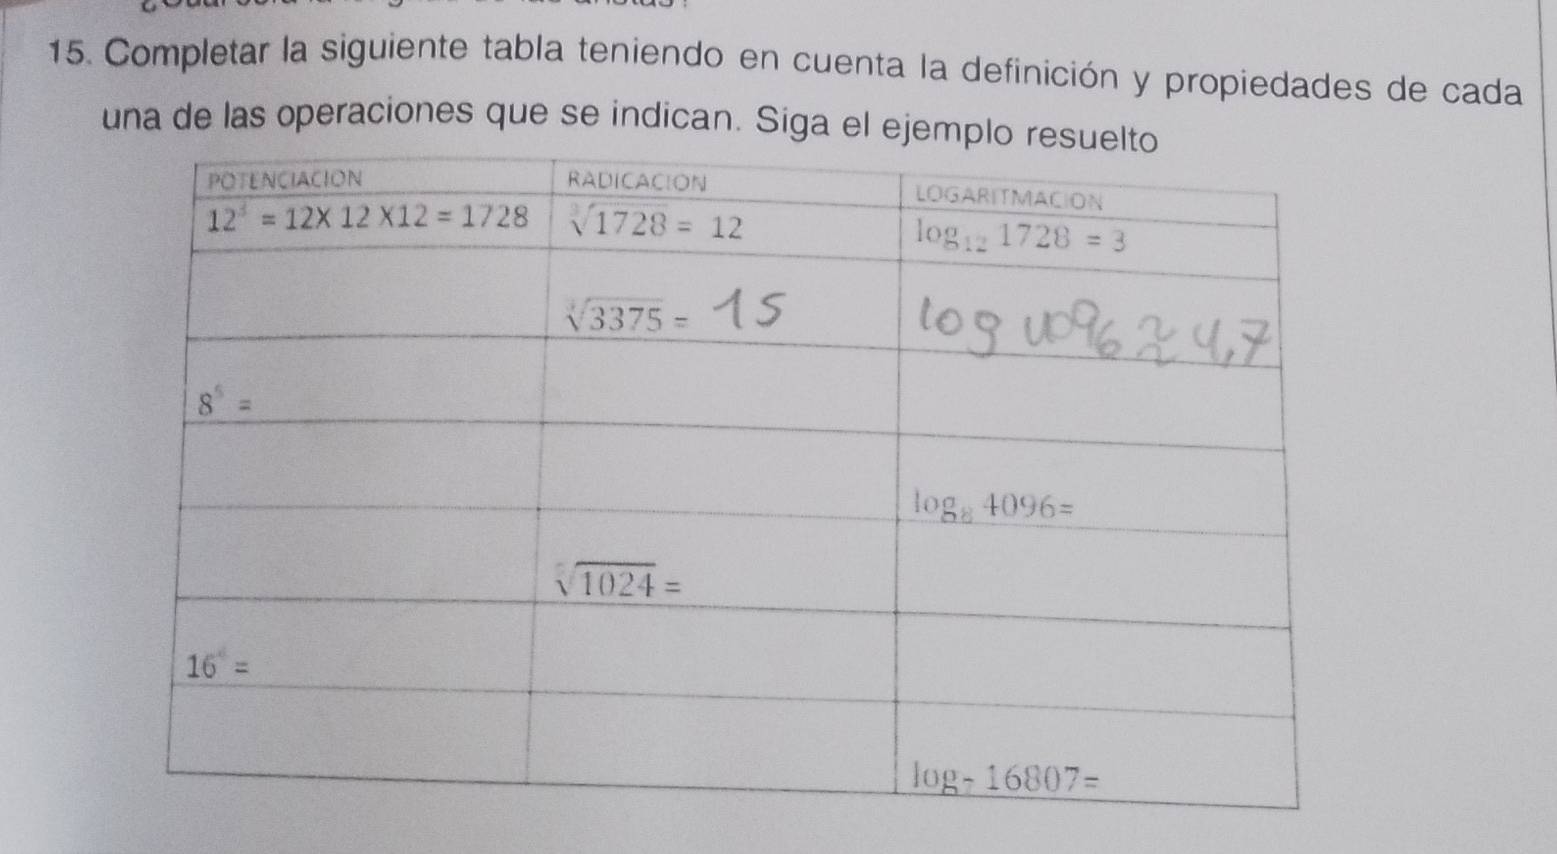 15. Completar la siguiente tabla teniendo en cuenta la definición y propiedades de cada
una de las operaciones que se indican. Siga el ejemplo resuelto
POTENCIACION RADICACION LOGARITMACION
12³ = 12X 12 X12 = 1728 ∛1728 = 12 log₁₂ 1728 = 3
∛3375 = 15 log 4096 ≈ 4,7
8⁵ =
log₈ 4096=
⁵√1024 =
16 =
log₇ 16807=